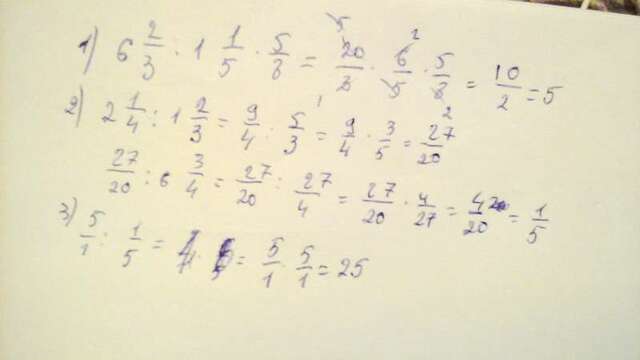 1) 6 2/3 : 1 1/5 · 5/8 = 20/3 · 6/5 · 5/8 = 10/2 = 5
2) 2 1/4 : 1 2/3 = 9/4 : 5/3 = 9/4 · 3/5 = 27/20
27/20 : 6 3/4 = 27/20 : 27/4 = 27/20 · 4/27 = 4/20 = 1/5
3) 5/1 : 1/5 = 5/1 · 5/1 = 25